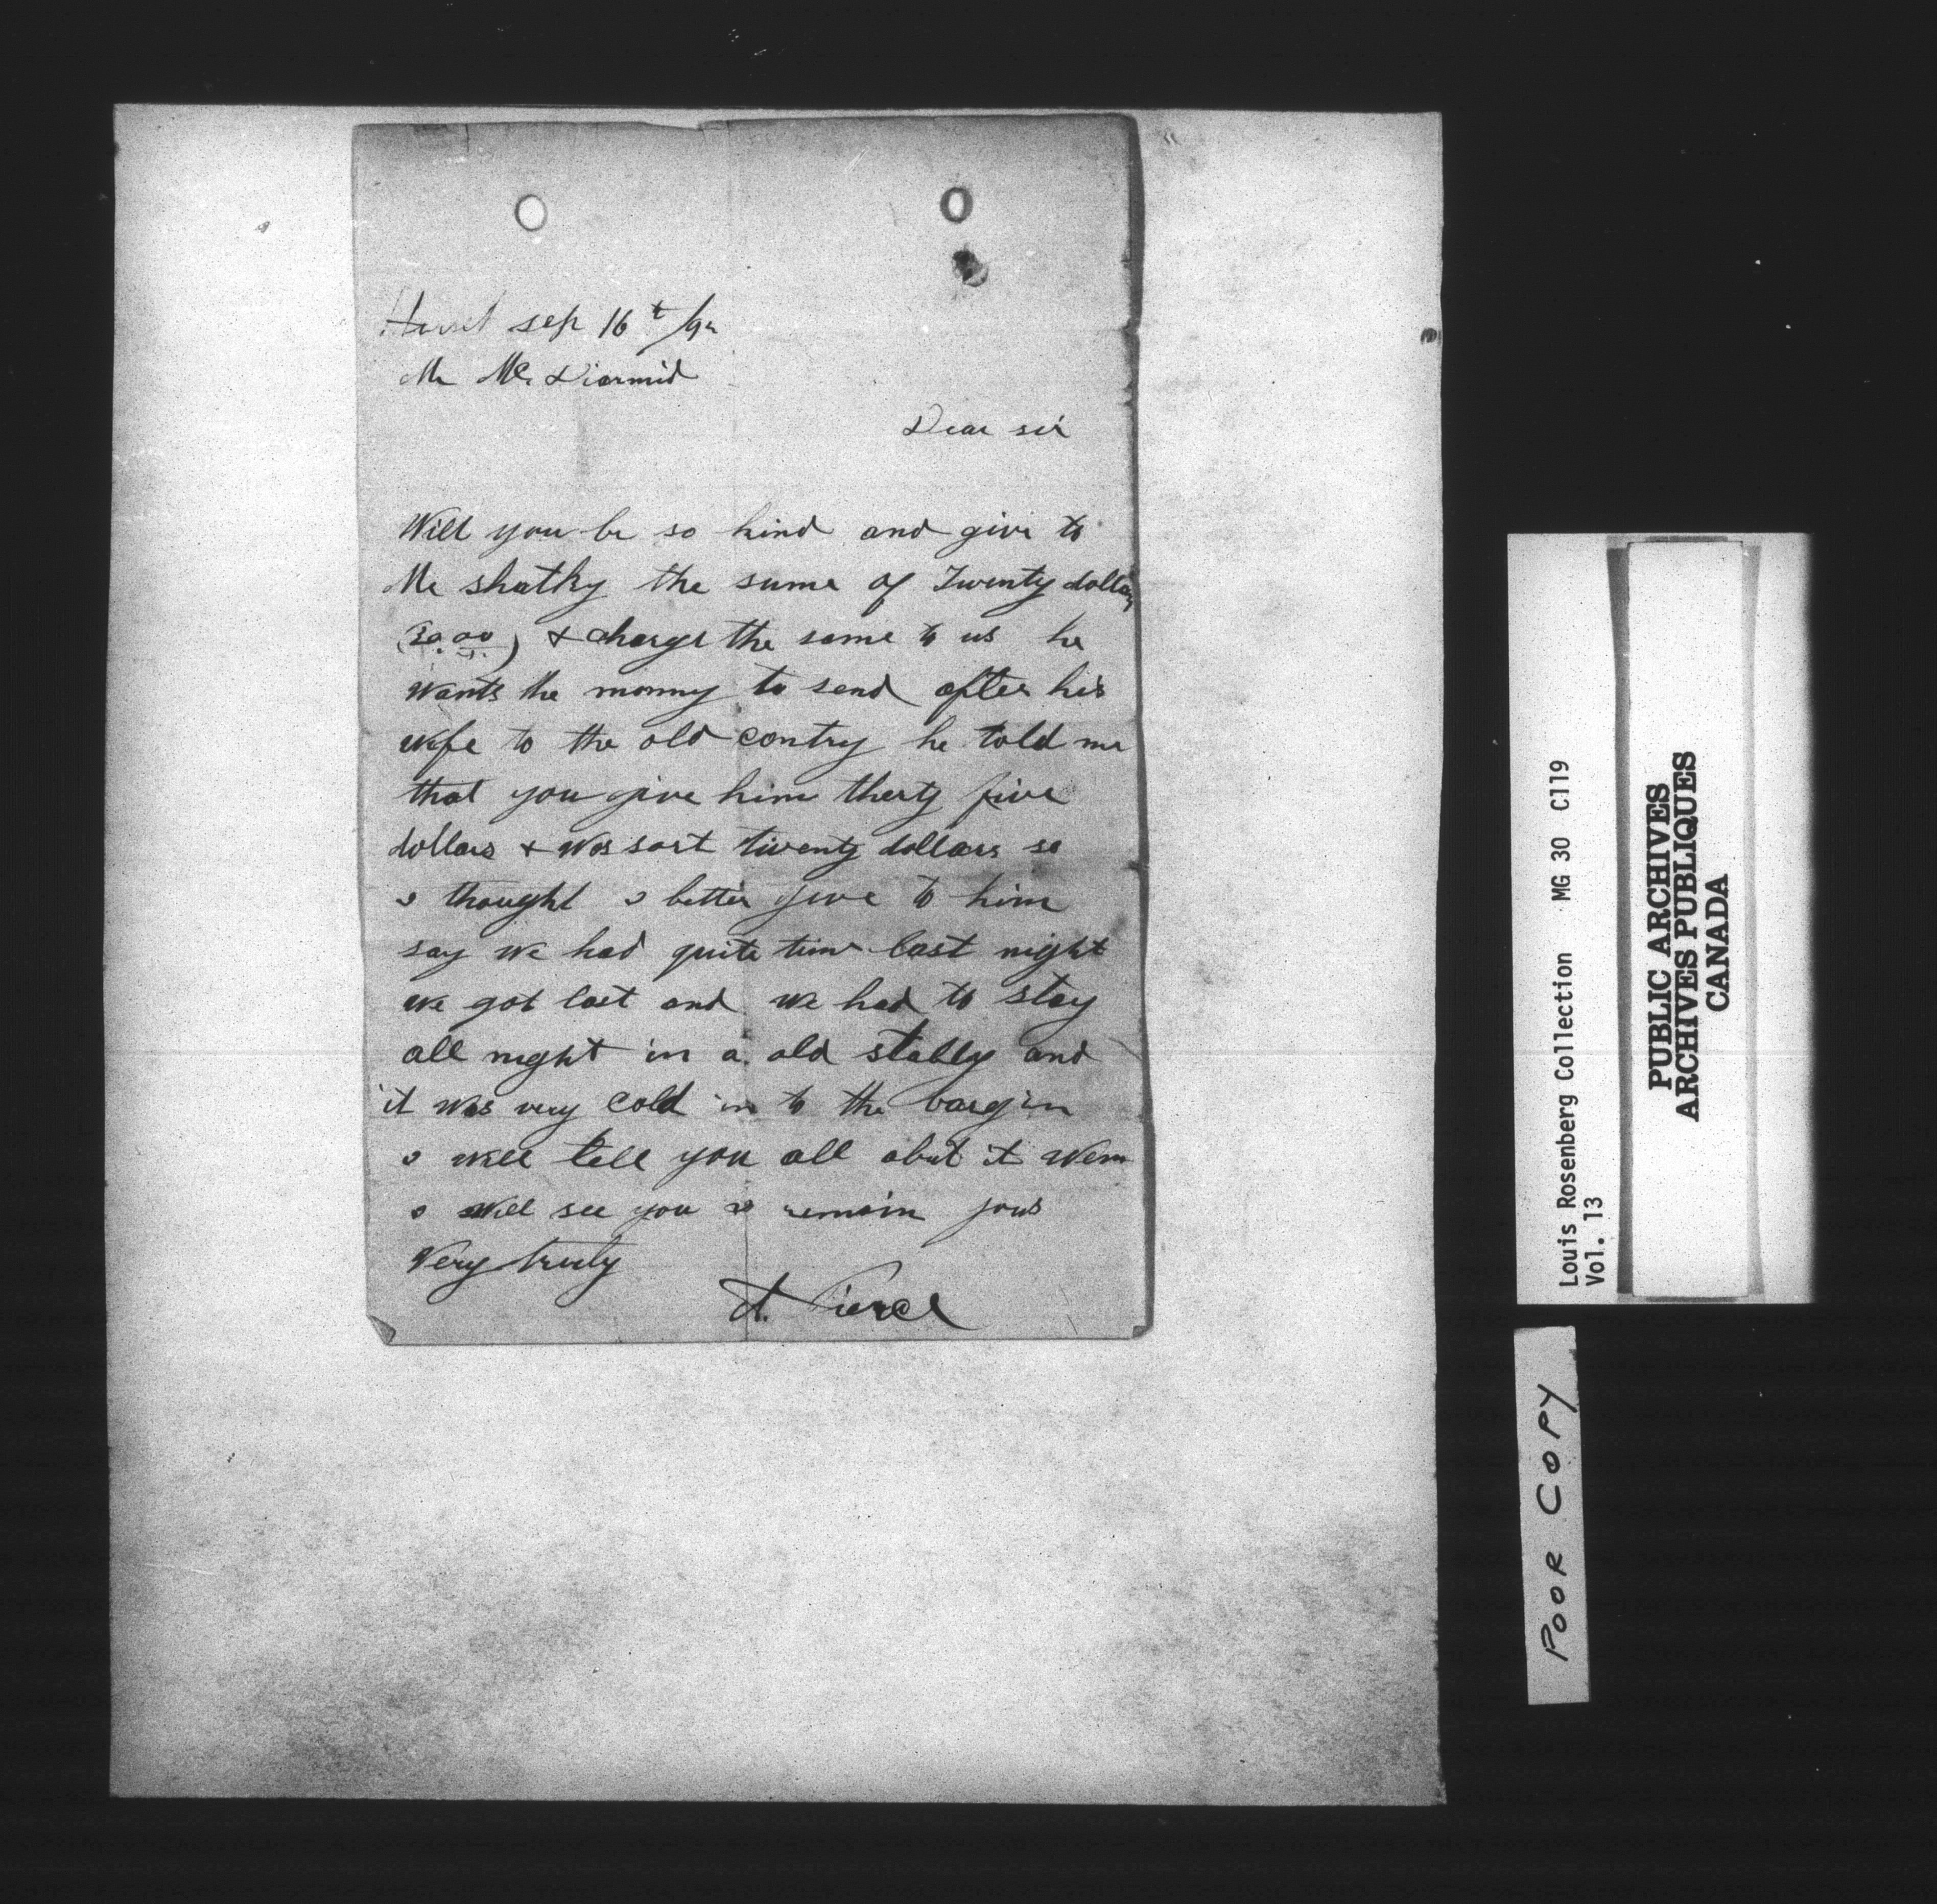 Hirsch sep 16t /92
Mr Mc Diarmid
Dear sir
Will you be so kind and give to
Mr shatky the sume of Twenty dollars
(20.00) & charge the same to us he
wants the monny to send after his
wife to the old contry he told me
that you give him therty five
dollars & was sort twenty dollars so
I thought I better give to him
say we had quite time last night
we got lost and we had to stay
all night in a old stably and
it was very cold in to the bargin
I will tell you all abut it wem
I will see you I remain yous
Very truly
A. Pierce
Louis Rosenberg Collection MG 30 C119
Vol. 13
PUBLIC ARCHIVES
ARCHIVES PUBLIQUES
CANADA
POOR COPY